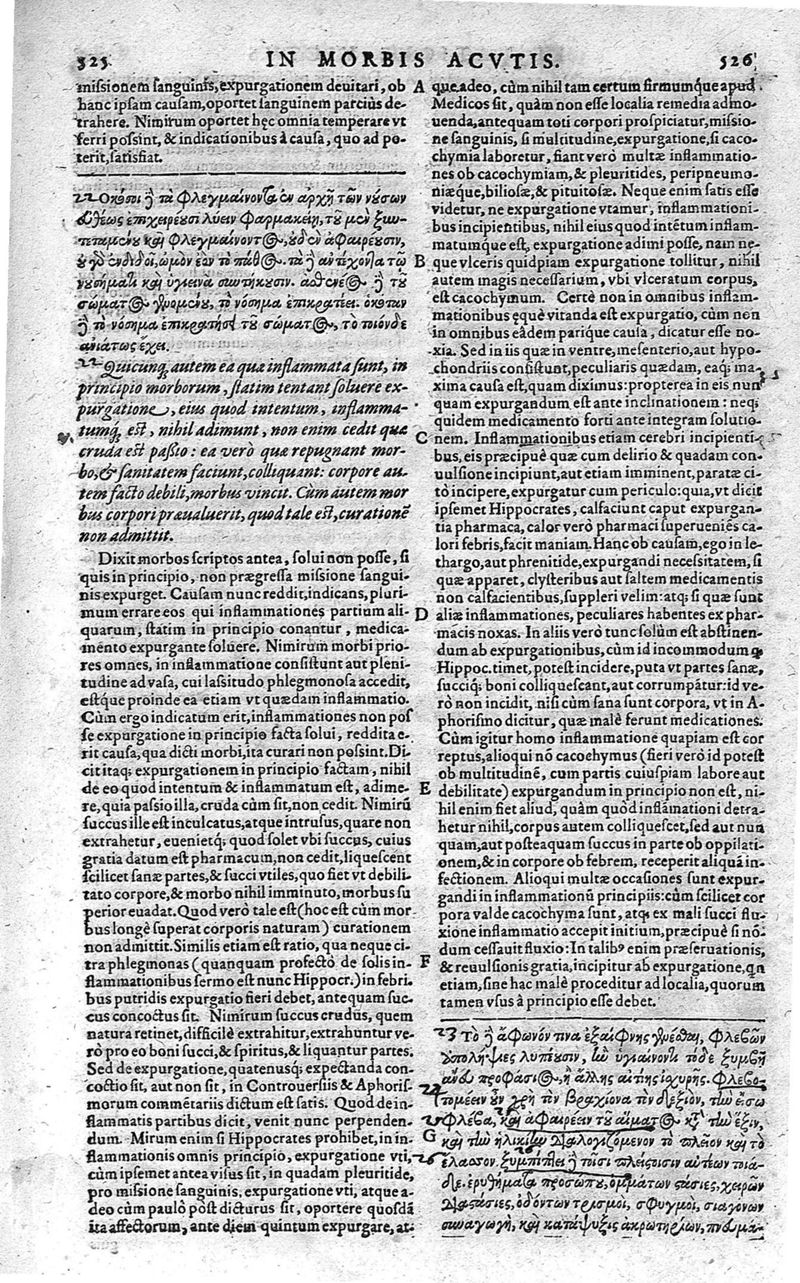 325
IN MORBIS ACVTIS.
526
missionem sanguinis, expurgationem deuitari, ob
hanc ipsam causam, oportet sanguinem parcius de-
trahere. Nimirum oportet hęc omnia temperare vt
ferri possint, & indicationibus à causa, quo ad po-
terit, satisfiat.
22 Ὁκόσοι δὲ τὰ φλεγμαίνοντα ἐν ἀρχῇ τῶν νούσων
εὐθέως ἐπιχειρέουσι λύειν φαρμακείῃ, τοῦ μὲν ξυν-
τεταμένου καὶ φλεγμαίνοντος, οὐδὲν ἀφαιρέουσιν,
οὐ γὰρ ἐνδιδοῖ, ὠμὸν ἐὸν τὸ πάθος. τὰ δ' ἀντέχοντα τῷ
νουσήματι καὶ ὑγιεινὰ συντήκουσιν. ἀσθενέος δὲ τοῦ
σώματος γενομένου, τὸ νόσημα ἐπικρατέει. ὁκόταν
δὲ τὸ νόσημα ἐπικρατήσῃ τοῦ σώματος, τὸ τοιόνδε
ἀνιάτως ἔχει.
22 Quicunq; autem ea quæ inflammata sunt, in
principio morborum, statim tentant soluere ex-
purgatione, eius quod intentum, inflamma-
tumq; est, nihil adimunt, non enim cedit quæ
cruda est passio: ea verò quæ repugnant mor-
bo, & sanitatem faciunt, colliquant: corpore au-
tem facto debili, morbus vincit. Cùm autem mor
bus corpori præualuerit, quod tale est, curationẽ
non admittit.
Dixit morbos scriptos antea, solui non posse, si
quis in principio, non prægressa missione sangui-
nis expurget. Causam nunc reddit, indicans, pluri-
mum errare eos qui inflammationes partium ali-
quarum, statim in principio conantur, medica-
mento expurgante soluere. Nimirum morbi prio-
res omnes, in inflammatione consistunt aut pleni-
tudine ad vasa, cui lassitudo phlegmonosa accedit,
estque proinde ea etiam vt quædam inflammatio.
Cùm ergo indicatum erit, inflammationes non pos
se expurgatione in principio facta solui, reddita e-
rit causa, qua dicti morbi, ita curari non possint. Di-
cit itaq; expurgationem in principio factam, nihil
de eo quod intentum & inflammatum est, adime-
re, quia passio illa, cruda cùm sit, non cedit. Nimirũ
succus ille est inculcatus, atque intrusus, quare non
extrahetur, euenietq; quod solet vbi succus, cuius
gratia datum est pharmacum, non cedit, liquescent
scilicet sanæ partes, & succi vtiles, quo fiet vt debili
tato corpore, & morbo nihil imminuto, morbus su
perior euadat. Quod verò tale est (hoc est cùm mor
bus longè superat corporis naturam) curationem
non admittit. Similis etiam est ratio, qua neque ci-
tra phlegmonas (quanquam profectò de solis in-
flammationibus sermo est nunc Hippocr.) in febri-
bus putridis expurgatio fieri debet, antequam suc-
cus concoctus sit. Nimirum succus crudus, quem
natura retinet, difficilè extrahitur, extrahuntur ve-
rò pro eo boni succi, & spiritus, & liquantur partes.
Sed de expurgatione, quatenusq; expectanda con-
coctio sit, aut non sit, in Controuersiis & Aphoris-
morum commẽtariis dictum est satis. Quod de in-
flammatis partibus dicit, venit nunc perpenden-
dum. Mirum enim si Hippocrates prohibet, in in-
flammationis omnis principio, expurgatione vti,
cùm ipsemet antea visus sit, in quadam pleuritide,
pro missione sanguinis, expurgatione vti, atque a-
deo cùm paulò pòst dicturus sit, oportere quosdã
ita affectorum, ante diem quintum expurgare, at-
A
B
C
D
E
F
G
que adeo, cùm nihil tam certum firmumque apud
Medicos sit, quàm non esse localia remedia admo-
uenda, antequam toti corpori prospiciatur, missio-
ne sanguinis, si multitudine, expurgatione, si caco-
chymia laboretur, fiant verò multæ inflammatio-
nes ob cacochymiam, & pleuritides, peripneumo-
niæque, biliosæ, & pituitosæ. Neque enim satis esse
videtur, ne expurgatione vtamur, inflammationi-
bus incipientibus, nihil eius quod intẽtum inflam-
matumque est, expurgatione adimi posse, nam ne-
que vlceris quidpiam expurgatione tollitur, nihil
autem magis necessarium, vbi vlceratum corpus,
est cacochymum. Certè non in omnibus inflam-
mationibus ęquè vitanda est expurgatio, cùm non
in omnibus eâdem parique causa, dicatur esse no-
xia. Sed in iis quæ in ventre, mesenterio, aut hypo-
chondriis consistunt, peculiaris quædam, eaq; ma-
xima causa est, quam diximus: propterea in eis nun
quam expurgandum est ante inclinationem: neq;
quidem medicamento forti ante integram solutio-
nem. Inflammationibus etiam cerebri incipienti-
bus, eis præcipuè quæ cum delirio & quadam con-
uulsione incipiunt, aut etiam imminent, paratæ ci-
tò incipere, expurgatur cum periculo: quia, vt dicit
ipsemet Hippocrates, calfaciunt caput expurgan-
tia pharmaca, calor verò pharmaci superueniẽs ca-
lori febris, facit maniam. Hanc ob causam, ego in le-
thargo, aut phrenitide, expurgandi necessitatem, si
quæ apparet, clysteribus aut saltem medicamentis
non calfacientibus, suppleri velim: atq; si quæ sunt
aliæ inflammationes, peculiares habentes ex phar-
macis noxas. In aliis verò tunc solùm est abstinen-
dum ab expurgationibus, cùm id incommodum q̃
Hippoc. timet, potest incidere, puta vt partes sanæ,
succiq; boni colliquescant, aut corrumpãtur: id ve-
rò non incidit, nisi cùm sana sunt corpora, vt in A-
phorismo dicitur, quæ malè ferunt medicationes.
Cùm igitur homo inflammatione quapiam est cor
reptus, alioqui nõ cacochymus (fieri verò id potest
ob multitudinẽ, cum partis cuiuspiam labore aut
debilitate) expurgandum in principio non est, ni-
hil enim fiet aliud, quàm quòd inflãmationi detra-
hetur nihil, corpus autem colliquescet, sed aut nun
quam, aut posteaquam succus in parte ob oppilati-
onem, & in corpore ob febrem, receperit aliquã in-
fectionem. Alioqui multæ occasiones sunt expur-
gandi in inflammationũ principiis: cùm scilicet cor
pora valde cacochyma sunt, atq; ex mali succi flu-
xione inflammatio accepit initium, præcipuè si nõ-
dum cessauit fluxio: In talibꝰ enim præseruationis,
& reuulsionis gratia, incipitur ab expurgatione, qñ
etiam, sine hac malè proceditur ad localia, quorum
tamen vsus à principio esse debet.
23 Τὸ δὲ ἄφωνόν τινα ἐξαίφνης γενέσθαι, φλεβῶν
ἀπολήψιες λυπέουσιν, ἢν ὑγιαίνοντι τόδε ξυμβῇ
ἄνευ προφάσιος, ἢ ἄλλης αἰτίης ἰσχυρῆς. φλεβο-
τομέειν οὖν χρὴ τὸν βραχίονα τὸν δεξιὸν, τὴν ἔσω
φλέβα, καὶ ἀφαιρέειν τοῦ αἵματος κατὰ τὴν ἕξιν,
καὶ τὴν ἡλικίην διαλογιζόμενον τὸ πλεῖον καὶ τὸ
ἔλασσον. ξυμπίπτει δὲ τοῖσι πλείστοισιν αὐτέων τοιά-
δε. ἐρυθήματα προσώπου, ὀμμάτων στάσιες, χειρῶν
διαστάσιες, ὀδόντων τρισμοὶ, σφυγμοὶ, σιαγόνων
συναγωγὴ, καὶ κατάψυξις ἀκρωτηρίων, πνευμά-